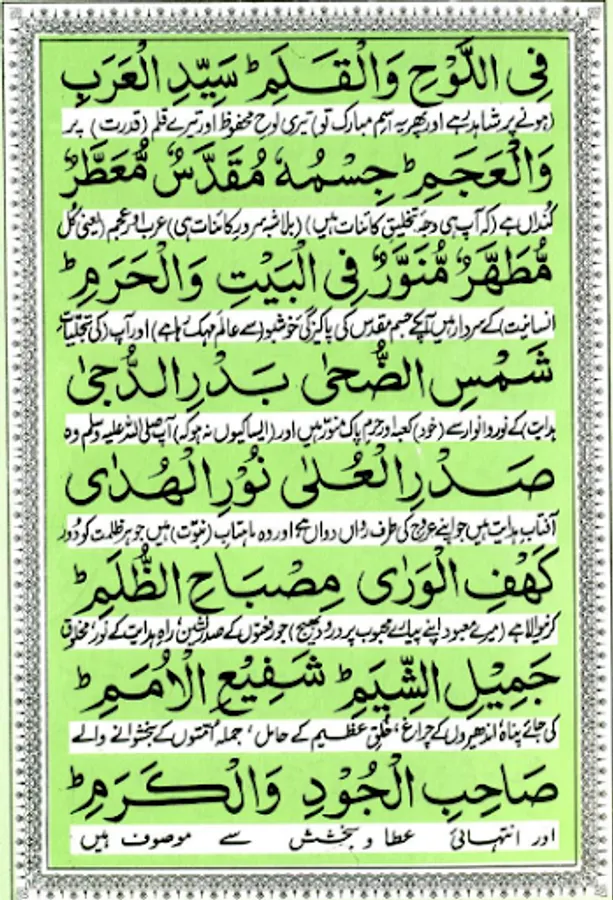 فِی اللَّوْحِ وَالْقَلَمِ ؕ سَیِّدِ الْعَرَبِ
(ہونے پر شاہد ہے اور پھر یہ اسم مبارک تو) تیری لوح محفوظ اور تیرے قلم (قدرت) پر
وَالْعَجَمِ ؕ جِسْمُہٗ مُقَدَّسٌ مُّعَطَّرٌ
کنداں ہے (کہ آپ ہی وجہ تخلیق کائنات ہیں) (بلاشبہ سرور کائنات ہی) عرب اور عجم (یعنی کل
مُّطَہَّرٌ مُّنَوَّرٌ فِی الْبَیْتِ وَالْحَرَمِ ؕ
انسانیت) کے سردار ہیں آپکے جسم مقدس کی پاکیزگی خوشبو (سے عالم مہک رہا ہے) اور آپ (کی تجلیات
شَمْسِ الضُّحٰی بَدْرِ الدُّجٰی
ہدایت) کے نور و انوار سے (خود) کعبہ اور حرم پاک منور ہیں اور (ایسا کیوں نہ ہو کہ) آپ صلی اللہ علیہ وسلم وہ
صَدْرِ الْعُلٰی نُوْرِ الْہُدٰی
آفتاب ہدایت ہیں جو اپنے عروج کی طرف رواں دواں ہے اور وہ ماہتاب (نبوت) ہیں جو ہر ظلمت کو دور
کَہْفِ الْوَرٰی مِصْبَاحِ الظُّلَمِ ؕ
کرنیوالا ہے (میرے معبود اپنے پیارے محبوب پر درود بھیج) جو رفعتوں کے صدر نشین، راہ ہدایت کے نور، مخلوق
جَمِیْلِ الشِّیَمِ ؕ شَفِیْعِ الْاُمَمِ ؕ
کی جائے پناہ، اندھیروں کے چراغ، خلق عظیم کے حامل، جملہ امتوں کے بخشوانے والے
صَاحِبِ الْجُوْدِ وَالْکَرَمِ ؕ
اور انتہائی عطا و بخشش سے موصوف ہیں